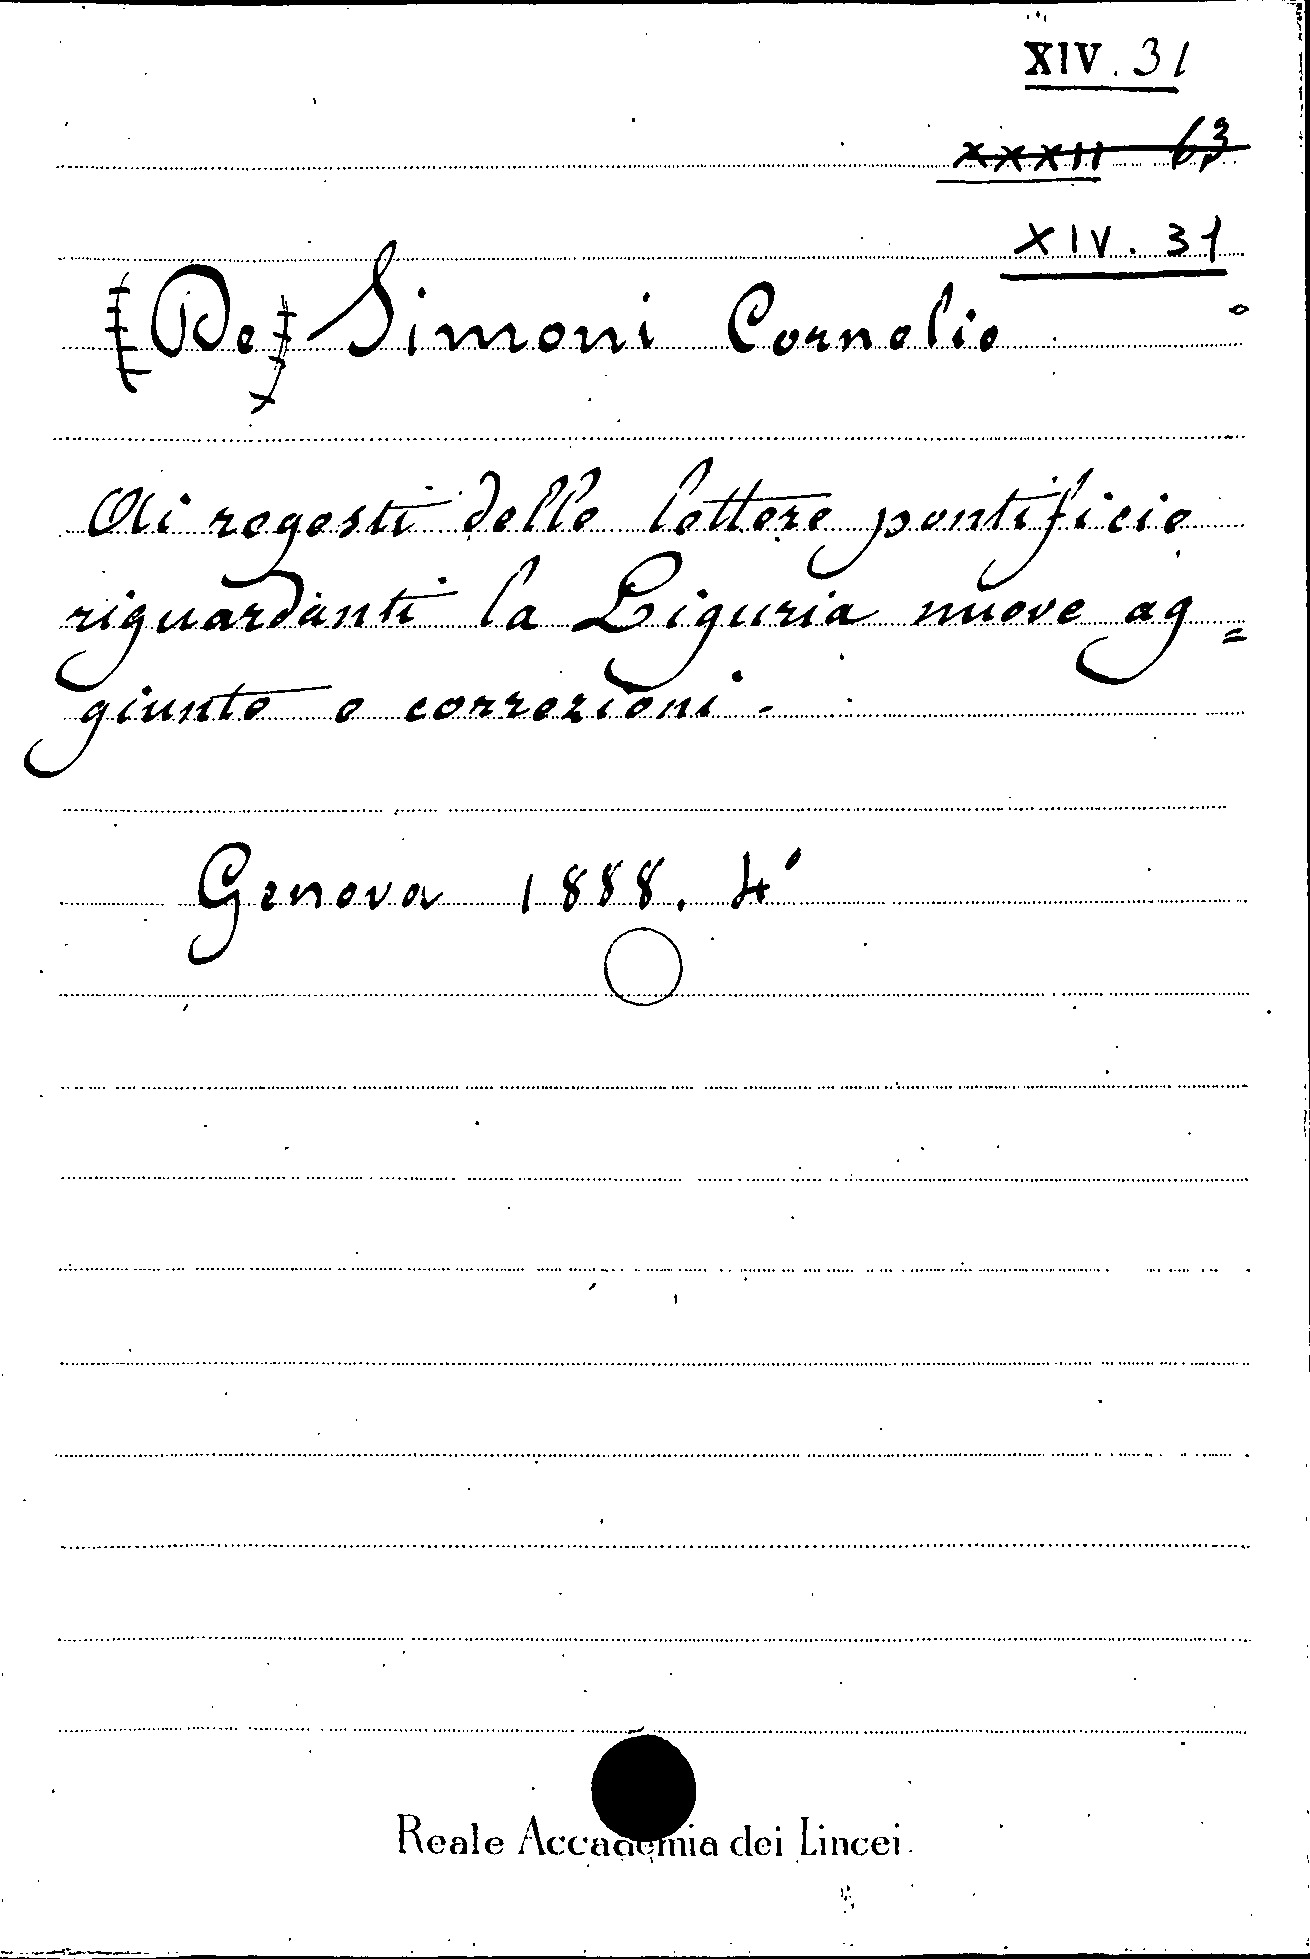 XIV. 31
XXXII 63
XIV. 31
[De] Simoni Cornelio
Ai regesti delle lettere pontificie
riguardanti la Liguria nuove ag=
giunte e correzioni.
Genova 1888. 4°
Reale Accademia dei Lincei